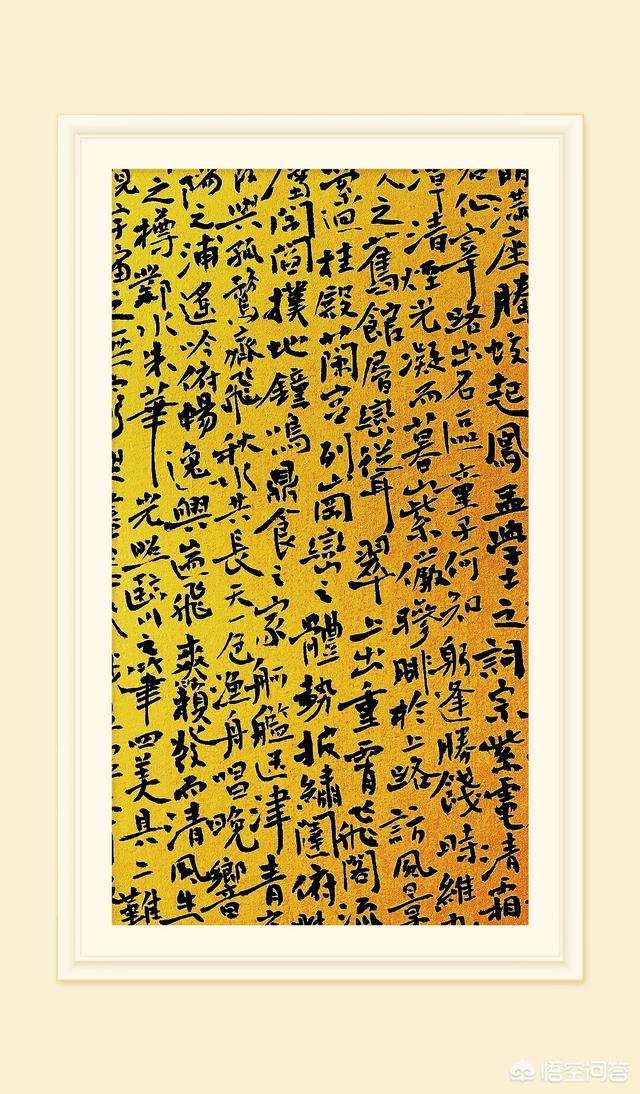 朋滿座騰蛟起鳳孟學士之詞宗紫電清霜
君作宰路出名區童子何知躬逢勝餞時維九
潭清煙光凝而暮山紫儼驂騑於上路訪風景
人之舊館層巒聳翠上出重霄飛閣流
縈迴桂殿蘭宮列岡巒之體勢披繡闥俯
閭閻撲地鐘鳴鼎食之家舸艦迷津青雀
與孤鶩齊飛秋水共長天一色漁舟唱晚響
陽之浦遙吟俯暢逸興遄飛爽籟發而清風生
之樽鄴水朱華光照臨川之筆四美具二難
宇宙之無窮
悟空问答